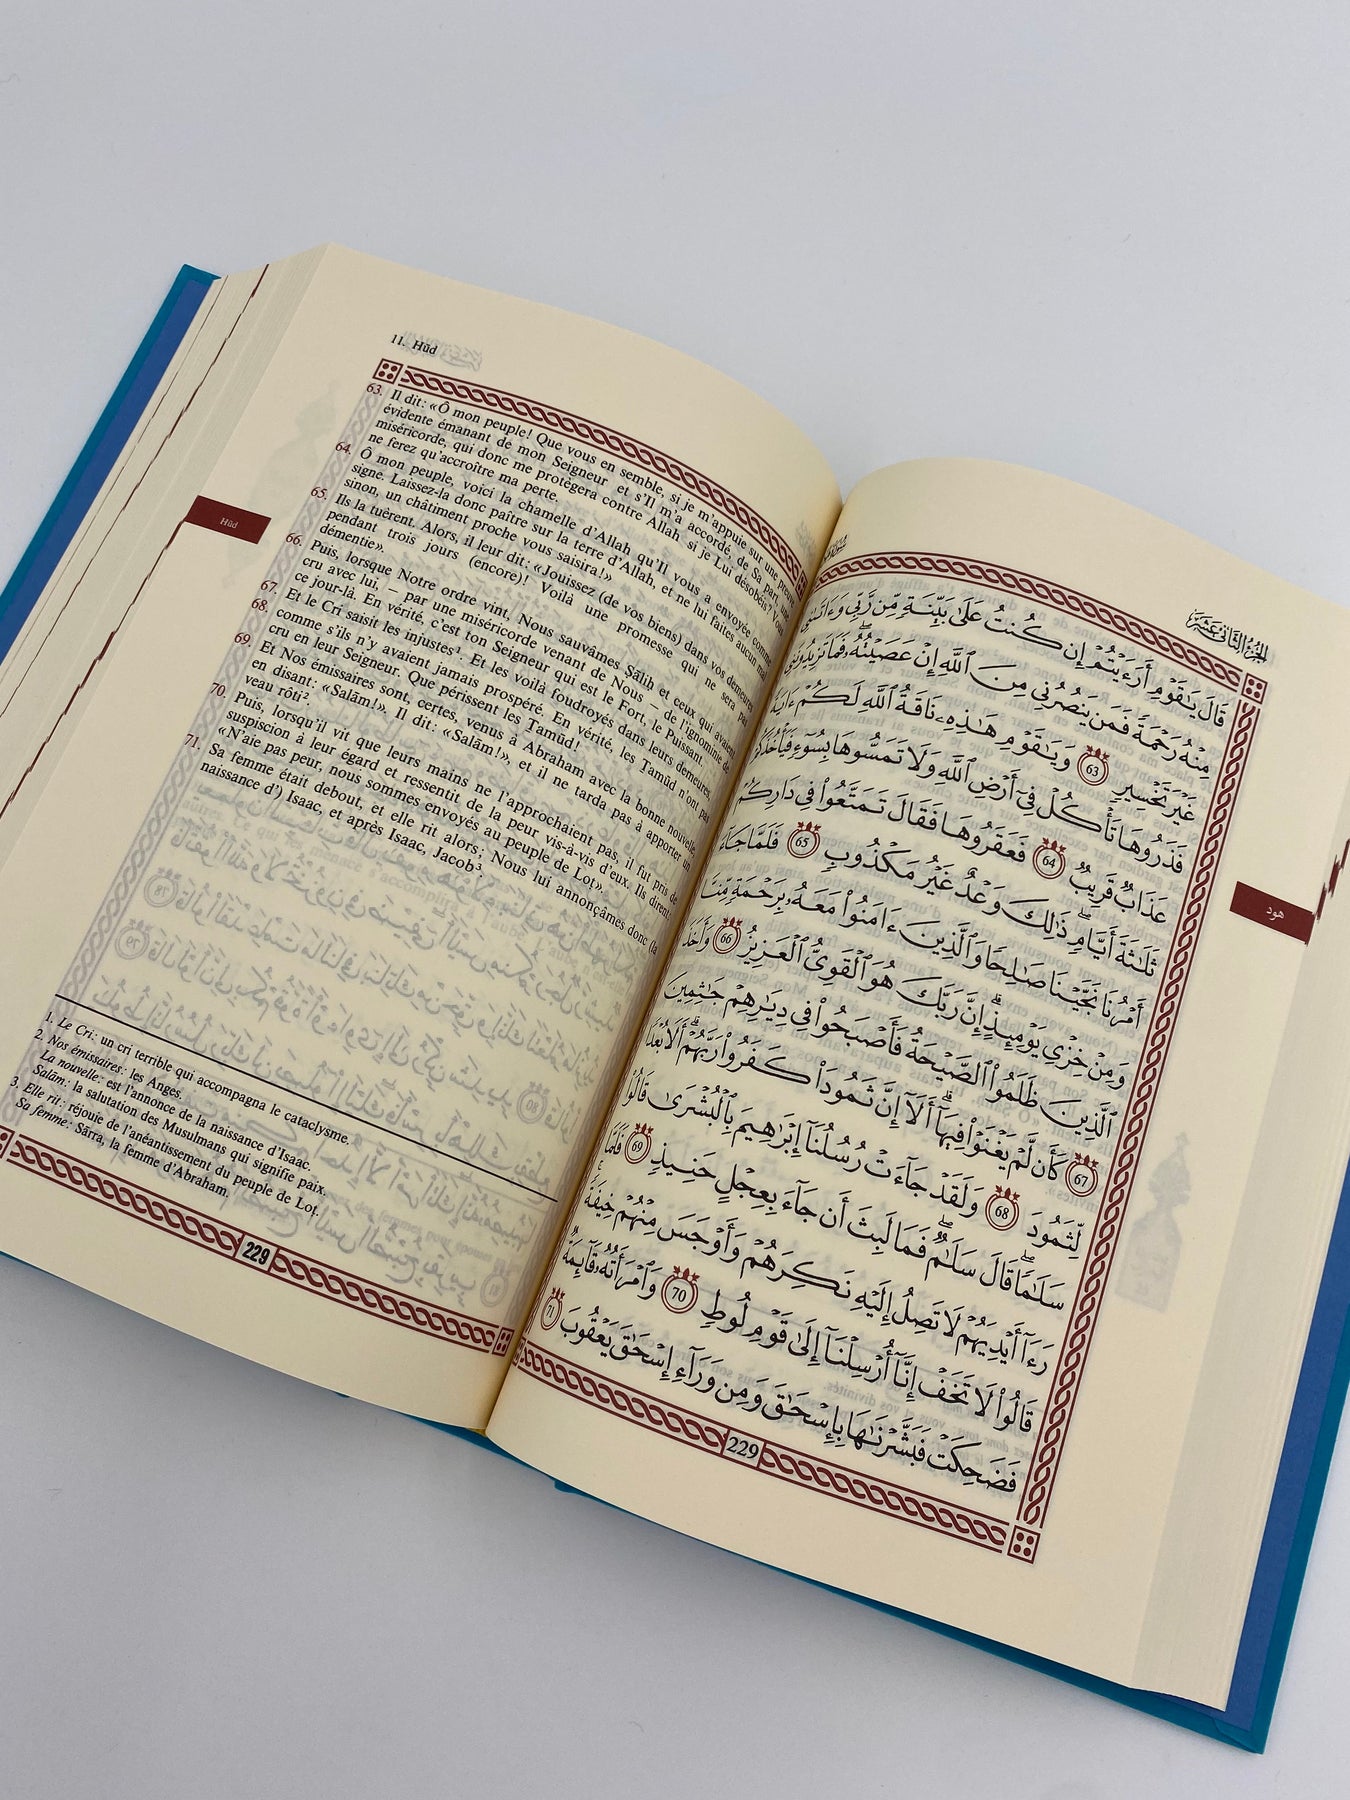 11. Hūd
63. Il dit: «Ô mon peuple! Que vous en semble, si je m'appuie sur une preuve
évidente émanant de mon Seigneur et s'Il m'a accordé, de Sa part, une
miséricorde, qui donc me protègera contre Allah si je Lui désobéis? Vous
ne ferez qu'accroître ma perte.
64. Ô mon peuple, voici la chamelle d'Allah qu'Il vous a envoyée comme
signe. Laissez-la donc paître sur la terre d'Allah, et ne lui faites aucun mal
sinon, un châtiment proche vous saisira!»
65. Ils la tuèrent. Alors, il leur dit: «Jouissez (de vos biens) dans vos demeures
pendant trois jours (encore)! Voilà une promesse qui ne sera pas
démentie».
66. Puis, lorsque Notre ordre vint, Nous sauvâmes Ṣāliḥ et ceux qui avaient
cru avec lui, – par une miséricorde venant de Nous – de l'ignominie de
ce jour-là. En vérité, c'est ton Seigneur qui est le Fort, le Puissant.
67. Et le Cri saisit les injustes¹. Et les voilà foudroyés dans leurs demeures,
68. comme s'ils n'y avaient jamais prospéré. En vérité, les Ṯamūd n'ont pas
cru en leur Seigneur. Que périssent les Ṯamūd!
69. Et Nos émissaires sont, certes, venus à Abraham avec la bonne nouvelle,
en disant: «Salām!». Il dit: «Salām!», et il ne tarda pas à apporter un
veau rôti².
70. Puis, lorsqu'il vit que leurs mains ne l'approchaient pas, il fut pris de
suspiscion à leur égard et ressentit de la peur vis-à-vis d'eux. Ils dirent:
«N'aie pas peur, nous sommes envoyés au peuple de Loṭ».
71. Sa femme était debout, et elle rit alors; Nous lui annonçâmes donc (la
naissance d') Isaac, et après Isaac, Jacob³.
Hūd
1. Le Cri: un cri terrible qui accompagna le cataclysme.
2. Nos émissaires: les Anges.
La nouvelle: est l'annonce de la naissance d'Isaac.
Salām: la salutation des Musulmans qui signifie paix.
3. Elle rit: réjouie de l'anéantissement du peuple de Loṭ.
Sa femme: Sārra, la femme d'Abraham.
229
الجزء الثاني عشر
قَالَ يَٰقَوْمِ أَرَءَيْتُمْ إِن كُنتُ عَلَىٰ بَيِّنَةٍ مِّن رَّبِّى وَءَاتَىٰنِى
مِنْهُ رَحْمَةً فَمَن يَنصُرُنِى مِنَ ٱللَّهِ إِنْ عَصَيْتُهُۥ ۖ فَمَا تَزِيدُونَنِى
غَيْرَ تَخْسِيرٍ 63 وَيَٰقَوْمِ هَٰذِهِۦ نَاقَةُ ٱللَّهِ لَكُمْ ءَايَةً
فَذَرُوهَا تَأْكُلْ فِىٓ أَرْضِ ٱللَّهِ وَلَا تَمَسُّوهَا بِسُوٓءٍ فَيَأْخُذَكُمْ
عَذَابٌ قَرِيبٌ 64 فَعَقَرُوهَا فَقَالَ تَمَتَّعُوا۟ فِى دَارِكُمْ
ثَلَٰثَةَ أَيَّامٍ ۖ ذَٰلِكَ وَعْدٌ غَيْرُ مَكْذُوبٍ 65 فَلَمَّا جَآءَ
أَمْرُنَا نَجَّيْنَا صَٰلِحًا وَٱلَّذِينَ ءَامَنُوا۟ مَعَهُۥ بِرَحْمَةٍ مِّنَّا
وَمِنْ خِزْىِ يَوْمِئِذٍ ۗ إِنَّ رَبَّكَ هُوَ ٱلْقَوِىُّ ٱلْعَزِيزُ 66 وَأَخَذَ
ٱلَّذِينَ ظَلَمُوا۟ ٱلصَّيْحَةُ فَأَصْبَحُوا۟ فِى دِيَٰرِهِمْ جَٰثِمِينَ
67 كَأَن لَّمْ يَغْنَوْا۟ فِيهَآ ۗ أَلَآ إِنَّ ثَمُودَا۟ كَفَرُوا۟ رَبَّهُمْ ۗ أَلَا بُعْدًا
لِّثَمُودَ 68 وَلَقَدْ جَآءَتْ رُسُلُنَآ إِبْرَٰهِيمَ بِٱلْبُشْرَىٰ قَالُوا۟
سَلَٰمًا ۖ قَالَ سَلَٰمٌ ۖ فَمَا لَبِثَ أَن جَآءَ بِعِجْلٍ حَنِيذٍ 69 فَلَمَّا
رَءَآ أَيْدِيَهُمْ لَا تَصِلُ إِلَيْهِ نَكِرَهُمْ وَأَوْجَسَ مِنْهُمْ خِيفَةً ۚ
قَالُوا۟ لَا تَخَفْ إِنَّآ أُرْسِلْنَآ إِلَىٰ قَوْمِ لُوطٍ 70 وَٱمْرَأَتُهُۥ قَآئِمَةٌ
فَضَحِكَتْ فَبَشَّرْنَٰهَا بِإِسْحَٰقَ وَمِن وَرَآءِ إِسْحَٰقَ يَعْقُوبَ 71
هود
229